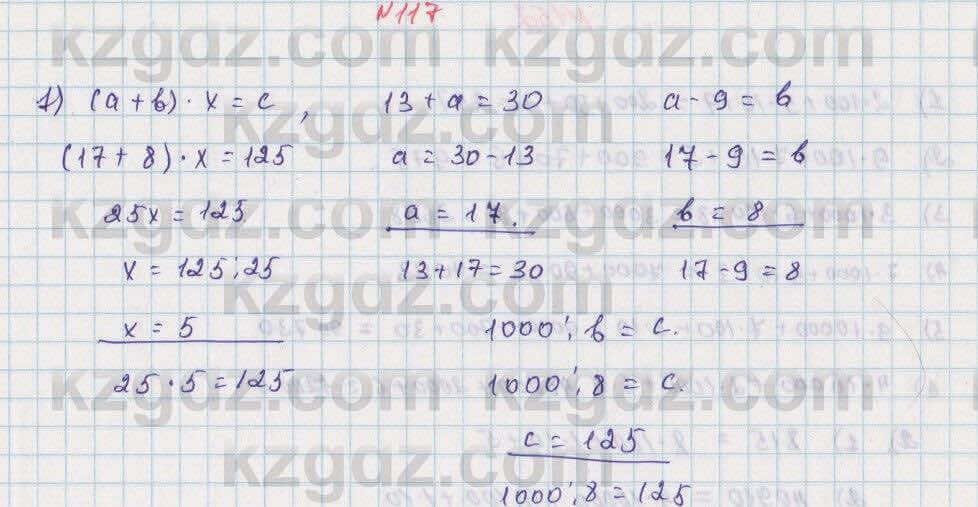 №117
1) (a + b) · x = c, 13 + a = 30 a - 9 = b
(17 + 8) · x = 125 a = 30 - 13 17 - 9 = b
25x = 125 a = 17. b = 8
x = 125 : 25 13 + 17 = 30 17 - 9 = 8
x = 5 1000 : b = c.
25 · 5 = 125 1000 : 8 = c.
c = 125
1000 : 8 = 125
kzgdz.com
kzgdz.com
kzgdz.com
kzgdz.com
kzgdz.com
kzgdz.com
kzgdz.com
kzgdz.com